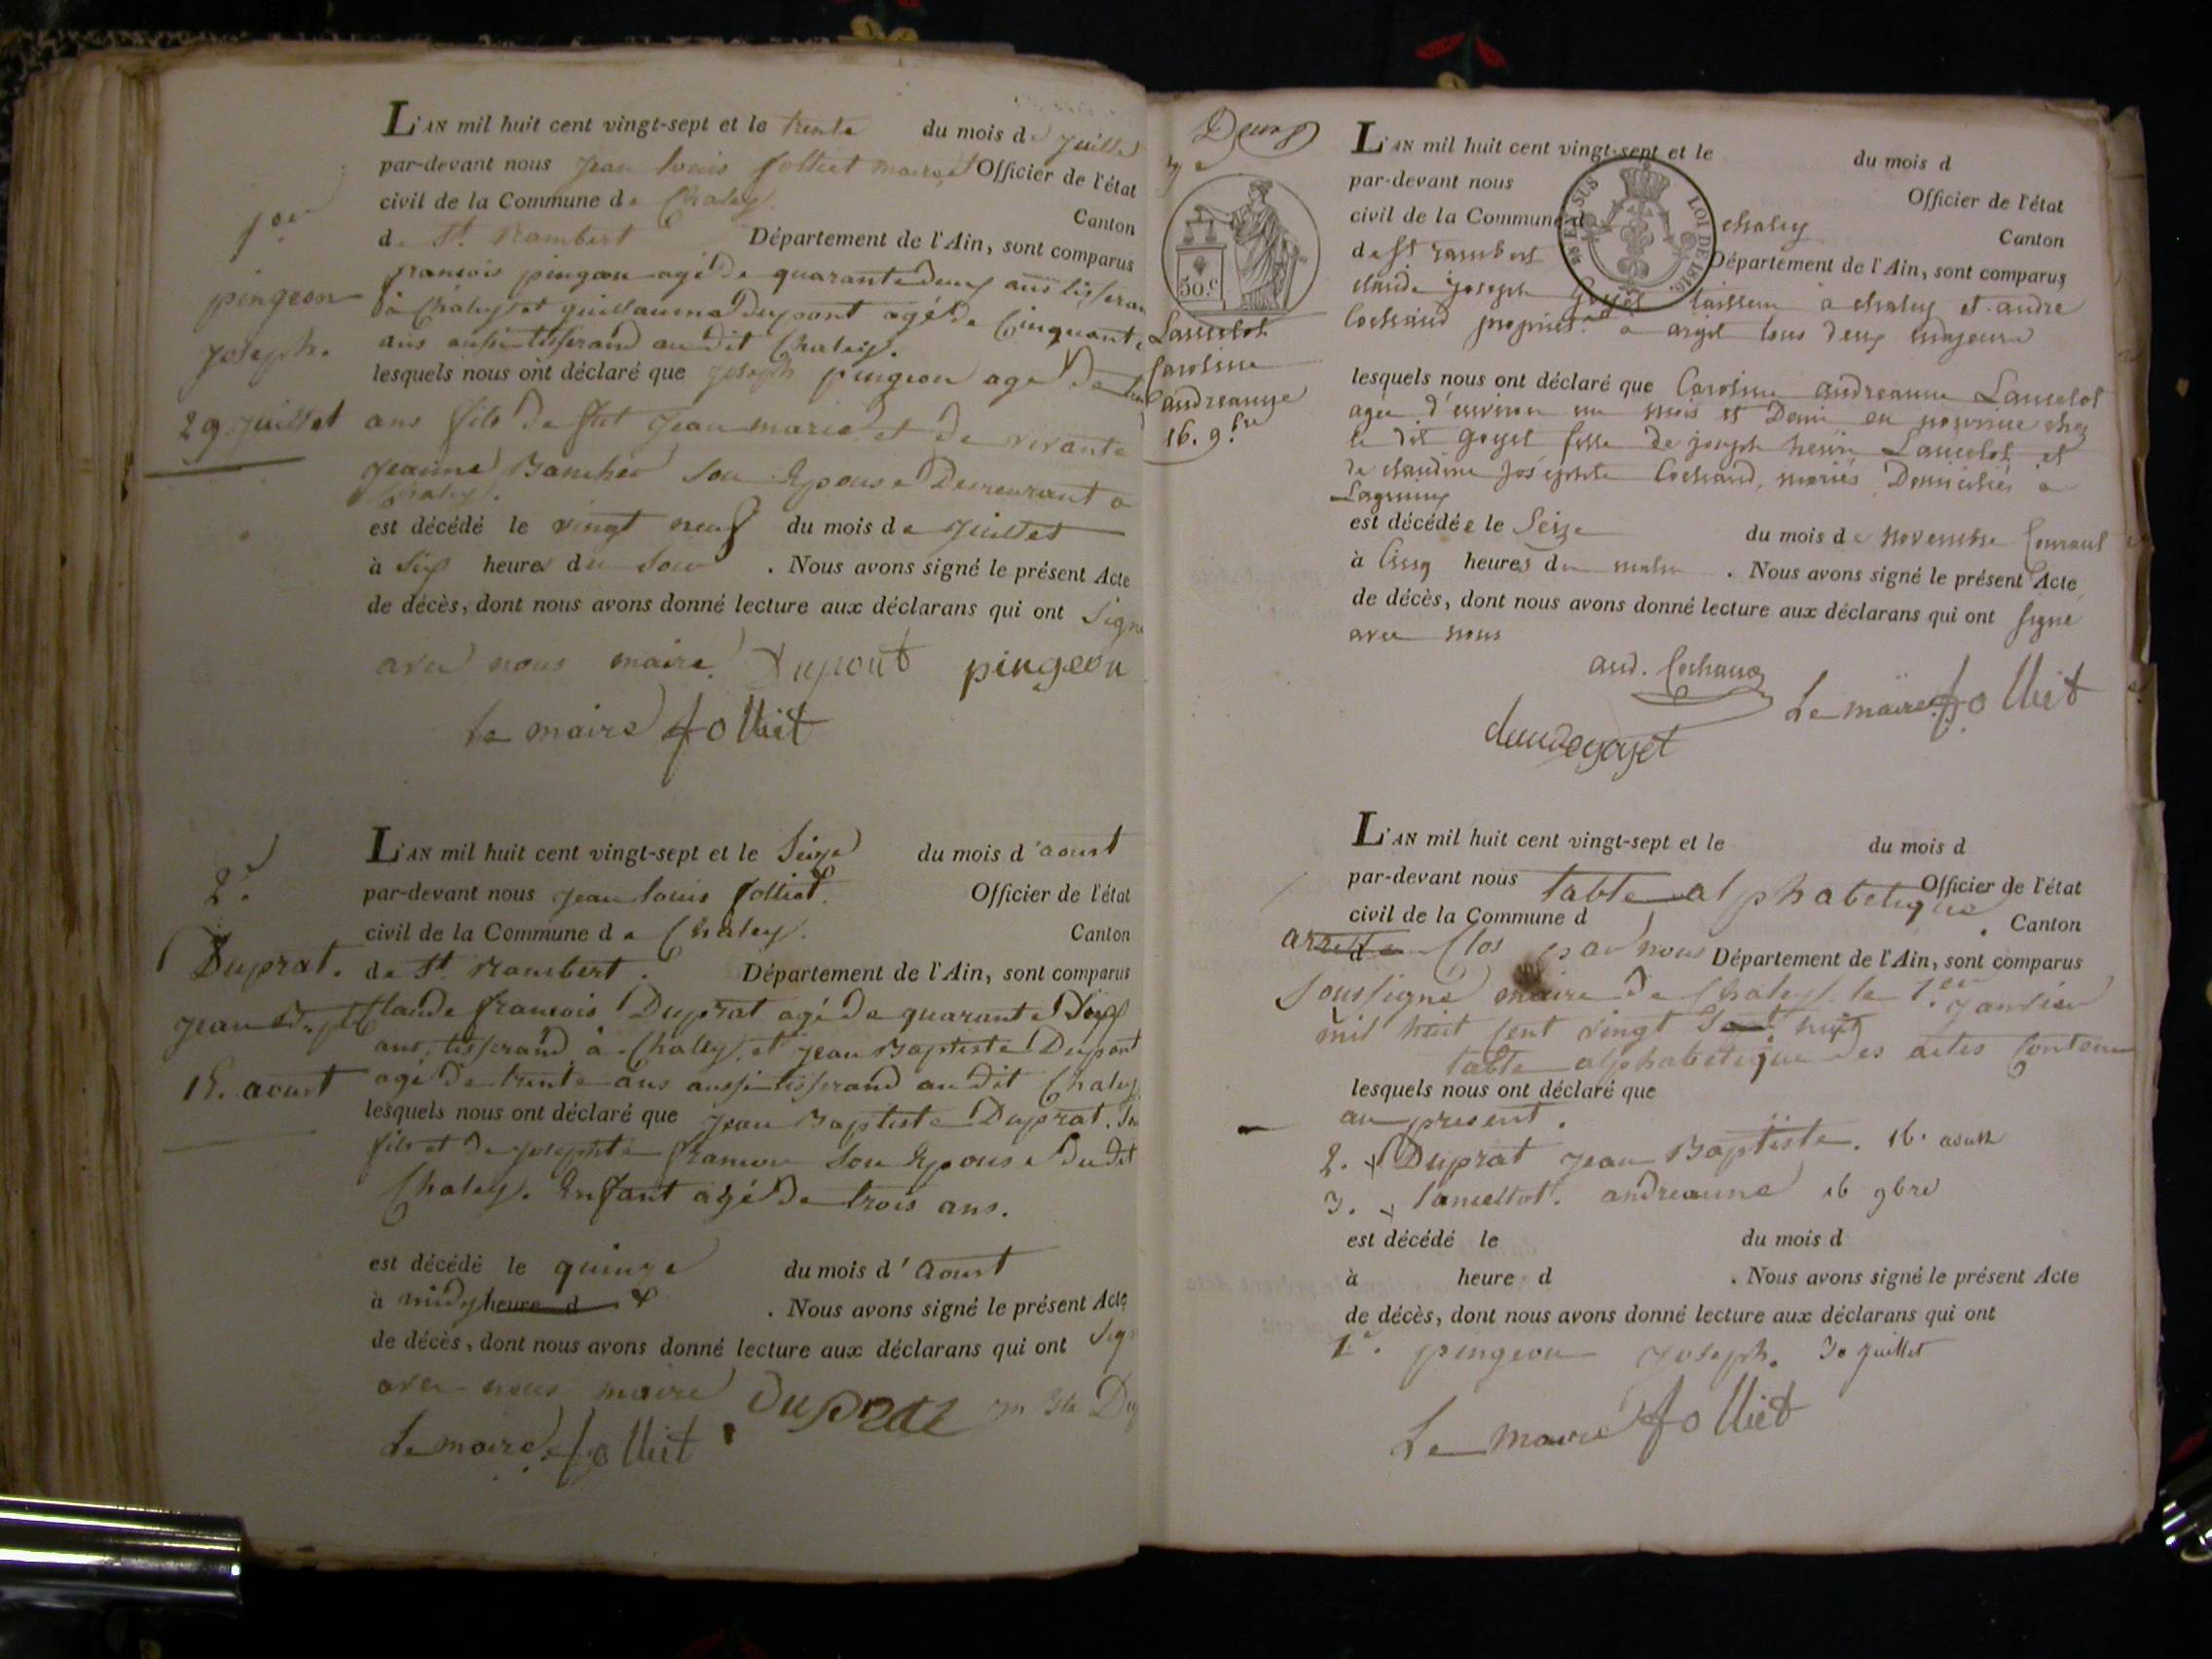 L'AN mil huit cent vingt-sept et le trente du mois de juillet
par-devant nous jean louis folliet maire Officier de l'état
civil de la Commune de Chaley. Canton
de St. Rambert Département de l'Ain, sont comparus
francois pingeon agé de quarante deux ans tisseran
à Chaley et guillaume Dupont agé de Cinquante
ans aussi tisserand au dit Chaley.
lesquels nous ont déclaré que joseph pingeon age de
ans fils de feu jean marie et de vivante
jeanne Bancher son Epouse Demeurant a
Chaley.
est décédé le vingt neuf du mois de juillet
à Six heures du soir . Nous avons signé le présent Acte
de décès, dont nous avons donné lecture aux déclarans qui ont Signé
avec nous maire. Dupont pingeon
Le maire folliet
1er
pingeon
joseph.
29 juillet
L'AN mil huit cent vingt-sept et le Seize du mois d'aoust
par-devant nous jean louis folliet. Officier de l'état
civil de la Commune de Chaley. Canton
de St Rambert. Département de l'Ain, sont comparus
Claude francois Duprat agé de quarante
ans, tisserand à Chaley, et jean Baptiste Dupont
agé de trente ans aussi tisserand au dit Chaley
lesquels nous ont déclaré que jean Baptiste Duprat. Son
fils et de josephte son Epouse dudit
Chaley. Enfant agé de trois ans.
est décédé le quinze du mois d'Aoust
à midy heure d . Nous avons signé le présent Acte
de décès, dont nous avons donné lecture aux déclarans qui ont Sign
avec nous maire Duprat jn Bte Du
Le maire folliet
2e.
Duprat.
jean Bte
15. aoust
Deux
3e
50.c
Lancelot
Caroline
andreanne
16. 9.bre
L'AN mil huit cent vingt-sept et le du mois d
par-devant nous Officier de l'état
civil de la Commune d chaley Canton
de St rambert Département de l'Ain, sont comparus
LOI DE 1816.
claude joseph goyet à chaley et andre
Cochaud propriet. à argit tous deux majeurs
lesquels nous ont déclaré que Caroline andreanne Lancelot
agée d'environ un mois et Demi en nourrice chez
le dit goyet fille de joseph henri Lancelot et
de claudine joséphte Cochaud, mariés Domiciliés à
Lagnieux
est décédée le Seize du mois de novembre Courant
à Cinq heures du matin . Nous avons signé le présent Acte
de décès, dont nous avons donné lecture aux déclarans qui ont signé
avec nous
and. Cochaud
Le maire folliet
claude goyet
L'AN mil huit cent vingt-sept et le du mois d
par-devant nous table alphabetique Officier de l'état
civil de la Commune d . Canton
d Clos par nous Département de l'Ain, sont comparus
Soussigné maire de Chaley le 1.er janvier
mil huit Cent vingt huit
table alphabetique des actes Contenu
lesquels nous ont déclaré que
au present.
2. Duprat jean Baptiste. 16. aoust
3. lancellot. andreanne 16 9bre
est décédé le du mois d
à heure d . Nous avons signé le présent Acte
de décès, dont nous avons donné lecture aux déclarans qui ont
1er. pingeon joseph. 30 juillet
Le maire folliet